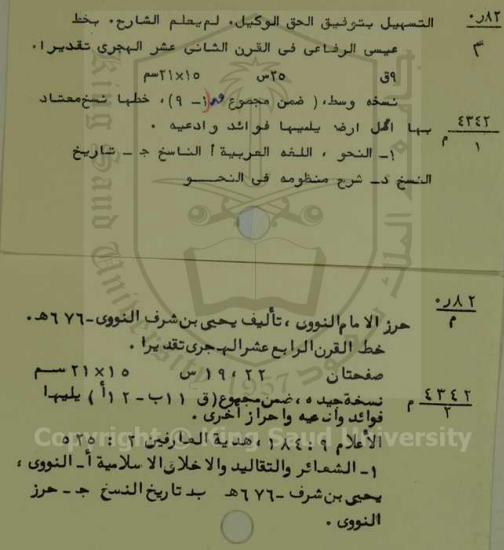 ٨٢ر٠
م
التسهيل بتوفيق الحق الوكيل. لم يعلم الشارح. بخط
عيسى الرفاعى فى القرن الثانى عشر الهجرى تقديرا.
٩ق ٢٥س ١٥×٢١سم
نسخه وسط، (ضمن مجموع ١ـ ٩)، خطها نسخ معتاد
بها اكل ارضه يليها فوائد وادعيه.
٤٣٤٢ م
١
١ـ النحو، اللغه العربية أ الناسخ جـ ـ تاريخ
النسخ د ـ شرح منظومه فى النحـــو
٨٢ر٠
م
حرز الامام النووى، تأليف يحيى بن شرف النووى-٦٧٦هـ.
خط القرن الرابع عشر الهجرى تقديرا.
صفحتان ١٩،٢٢س ١٥×٢١سم
٤٣٤٢ م
٢
نسخة جيده، ضمن مجموع (ق ١١ب-١٢أ) يليها
فوائد وادعيه واحراز أخرى.
الأعلام ٩: ١٨٤، هدية العارفين ٢: ٥٢٥
١- الشعائر والتقاليد والاخلاق الاسلامية أ- النووى،
يحيى بن شرف -٦٧٦هـ بـ تاريخ النسخ جـ- حرز
النووى.
Copyright © King Saud University
King Saud University
1957